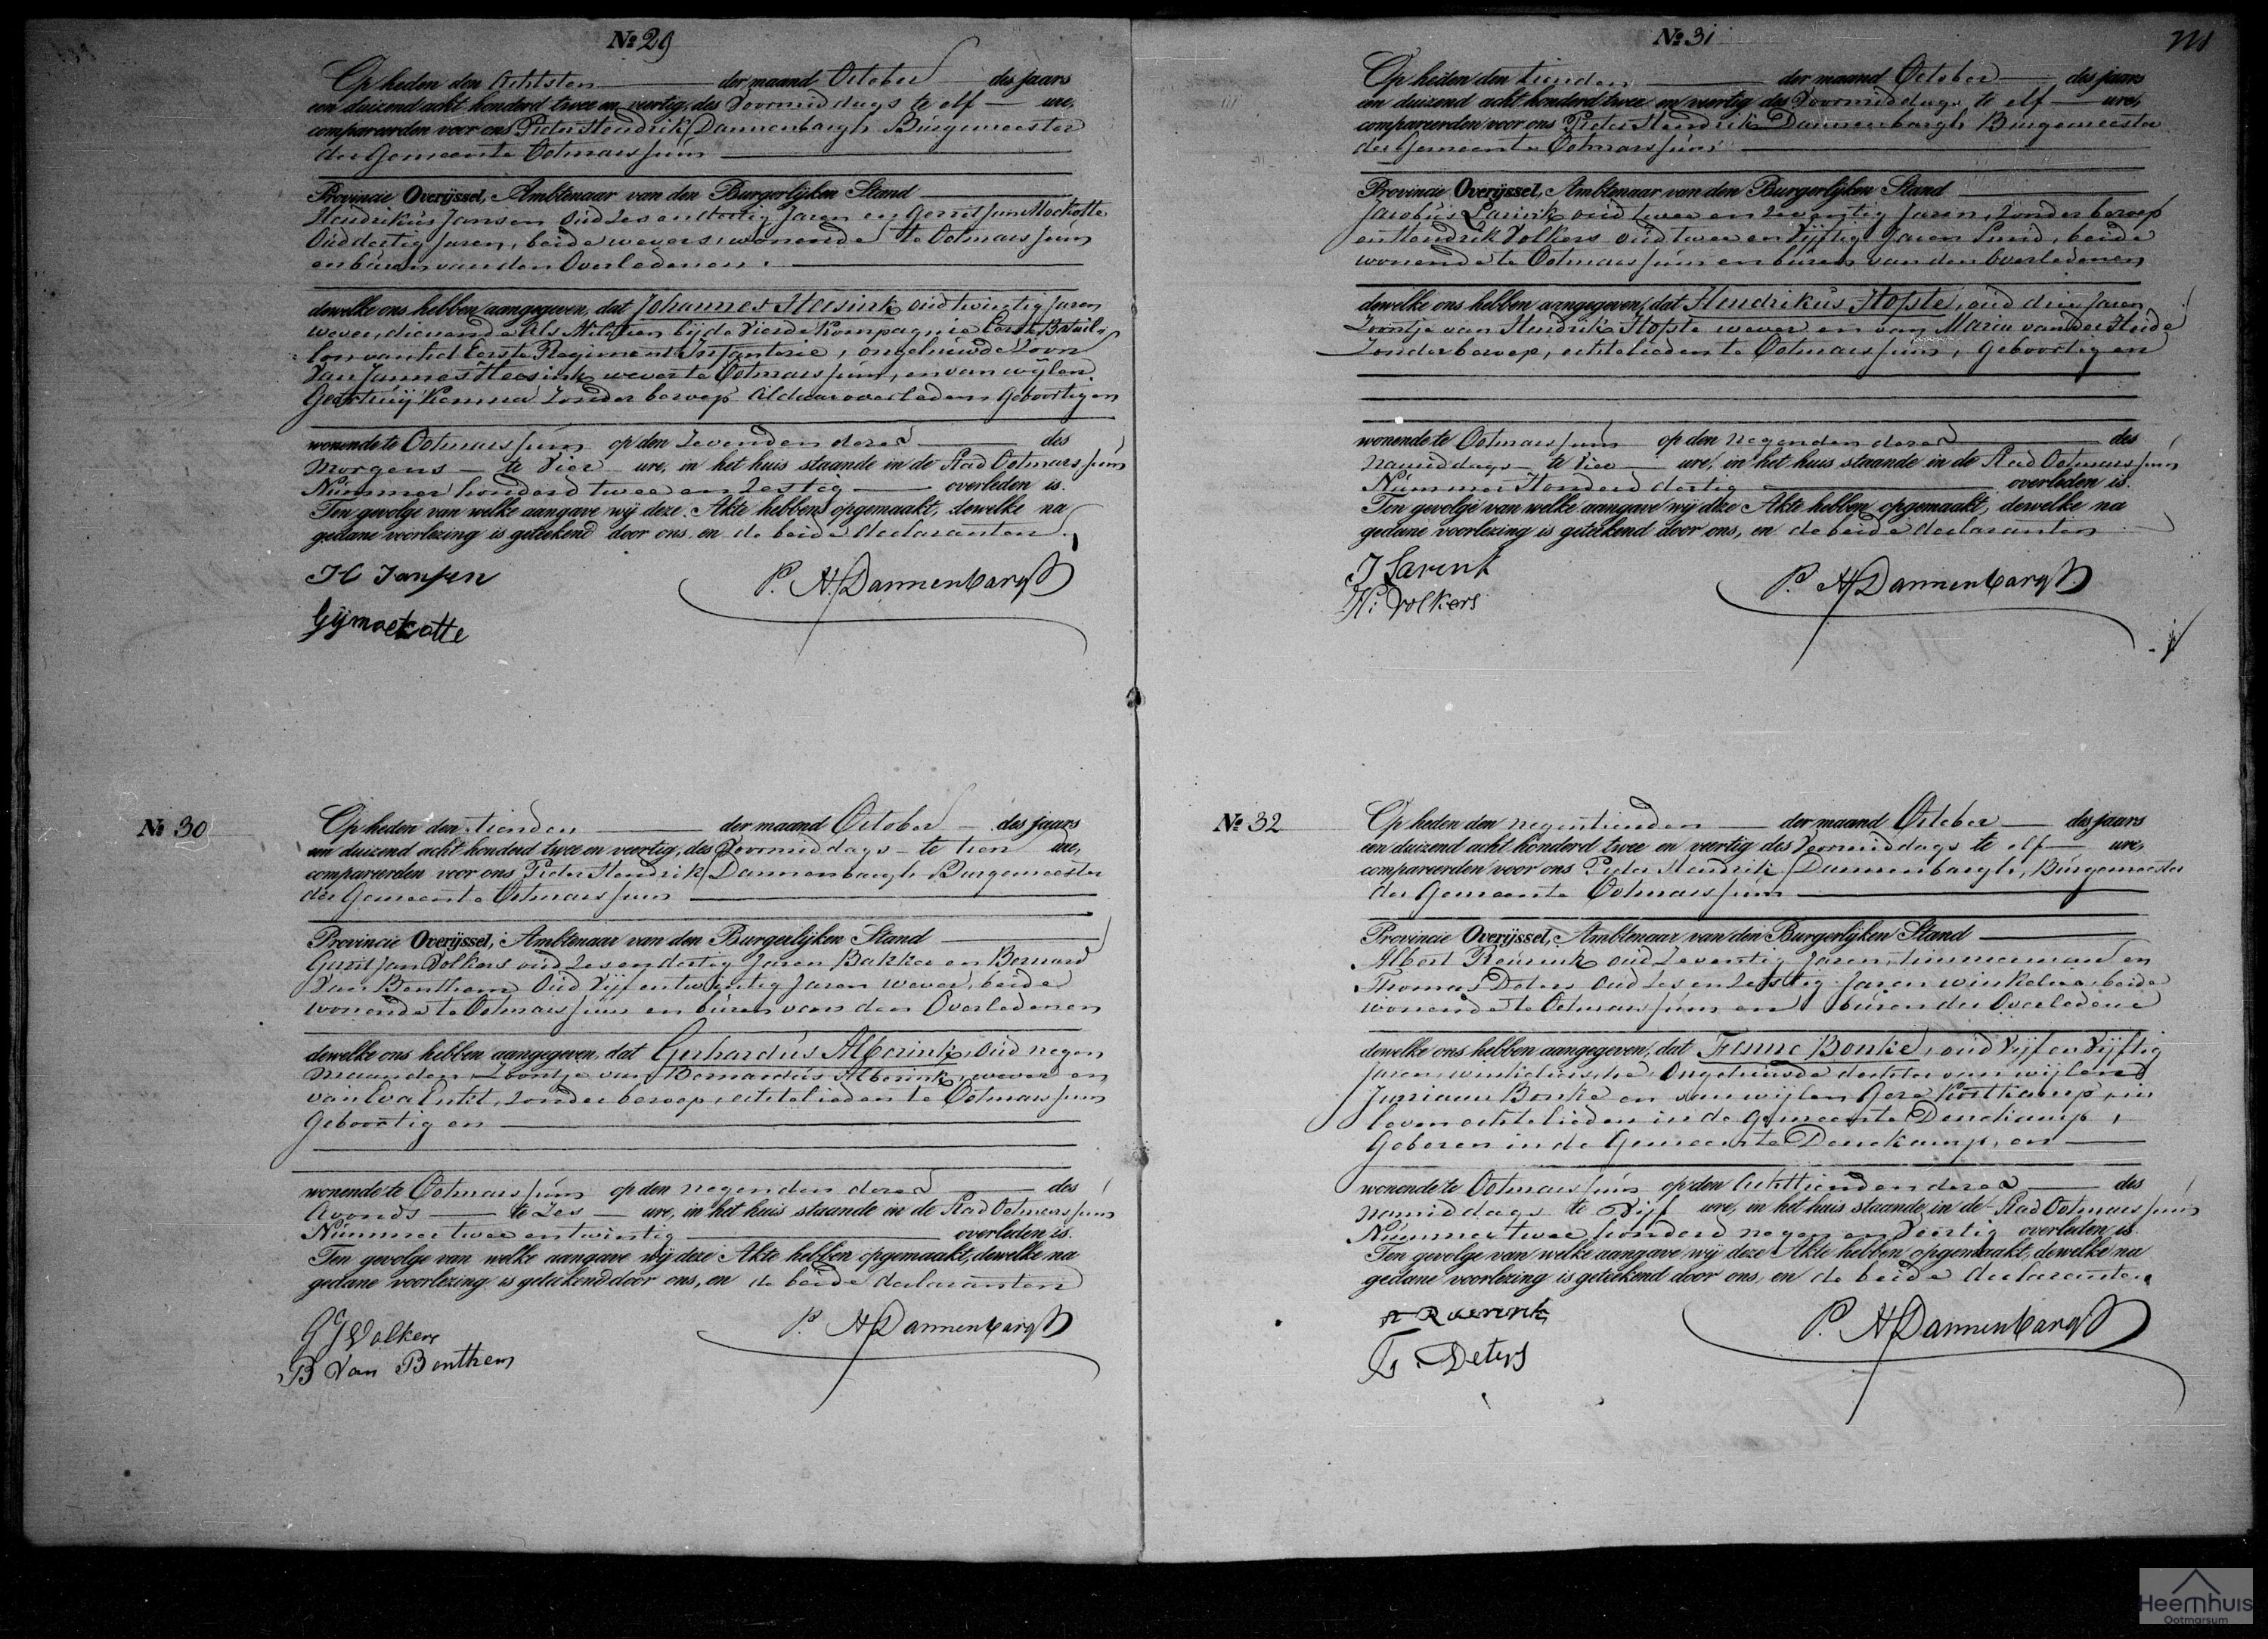 № 29
Op heden den Achtsten der maand October des jaars
een duizend acht honderd twee en veertig, des Voormiddags te elf ure,
compareerden voor ons Pieter Hendrik Dannenbargh Burgemeester
der Gemeente Ootmarssum
Provincie Overijssel, Ambtenaar van den Burgerlijken Stand
Hendrikus Jansen oud zes en dertig Jaren en Gerrit Jan Moekotte
Oud dertig Jaren, beide wevers, wonende te Ootmarssum
en buren van den Overledenen.
dewelke ons hebben aangegeven, dat Johannes Heesink, oud twintig Jaren
wever, dienende als Militien bij de Vierde Kompagnie Eerste Batail,
lon van het Eerste Regiment Infanterie, ongehuwde Zoon
Van Jannes Heesink wever te Ootmarssum, en van wylen
zonder beroep Aldaar overleden Geboortig en
wonende te Ootmarssum op den zevenden dezer des
Morgens te Vier ure, in het huis staande in de Stad Ootmarssum
Nummer honderd twee en zestig overleden is.
Ten gevolge van welke aangave wij deze Akte hebben opgemaakt, dewelke na
gedane voorlezing is geteekend door ons, en de beide declaranten.
H Jansen
P. H. Dannenbargh
GJ moekotte
№ 30
Op heden den tienden der maand October des jaars
een duizend acht honderd twee en veertig, des Voormiddags te tien ure,
compareerden voor ons Pieter Hendrik Dannenbargh Burgemeester
der Gemeente Ootmarssum
Provincie Overijssel, Ambtenaar van den Burgerlijken Stand
Gerrit Jan Volkers oud zes en dertig Jaren Bakker en Bernard
Van Benthem Oud Vijf en twintig Jaren wever, beide
wonende te Ootmarssum en buren van den Overledenen
dewelke ons hebben aangegeven, dat Gerhardus Alberink, oud negen
maanden, Zoontje van Bernardus Alberink, wever en
van Eva zonder beroep, echtelieden te Ootmarssum
Geboortig en
wonende te Ootmarssum op den negenden dezer des
Avonds te Zes ure, in het huis staande in de Stad Ootmarssum
Nummer twee en twintig overleden is.
Ten gevolge van welke aangave wij deze Akte hebben opgemaakt, dewelke na
gedane voorlezing is geteekend door ons, en de beide declaranten
G J Volkers
P. H. Dannenbargh
B Van Benthem
№ 31
Op heden den tienden der maand October des jaars
een duizend acht honderd twee en veertig des Voormiddags te elf ure,
compareerden voor ons Pieter Hendrik Dannenbargh Burgemeester
der Gemeente Ootmarssum
Provincie Overijssel, Ambtenaar van den Burgerlijken Stand
Jacobus Sarink oud twee en zeventig Jaren, zonder beroep
en Hendrik Volkers oud twee en Vijftig Jaren Smid, beide
wonende te Ootmarssum en buren van den overledenen
dewelke ons hebben aangegeven, dat Hendrikus Hofste, oud drie Jaren
Zoontje van Hendrik Hofste wever en van Maria van der Heide
Zonder beroep, echtelieden te Ootmarssum, Geboortig en
wonende te Ootmarssum op den negenden dezer des
namiddags te Vier ure, in het huis staande in de Stad Ootmarssum
Nummer Honderd dertig overleden is.
Ten gevolge van welke aangave wij deze Akte hebben opgemaakt, dewelke na
gedane voorlezing is geteekend door ons, en de beide declaranten
J Sarink
P. H. Dannenbargh
H: Volkers
№ 32
Op heden den negentienden der maand October des jaars
een duizend acht honderd twee en veertig des Voormiddags te elf ure,
compareerden voor ons Pieter Hendrik Dannenbargh, Burgemeester
der Gemeente Ootmarssum
Provincie Overijssel, Ambtenaar van den Burgerlijken Stand
Albert Reurink oud Zeventig Jaren, timmerman en
Thomas Deters Oud Zes en Zestig Jaren winkelier, beide
wonende te Ootmarssum en buren der Overledene
dewelke ons hebben aangegeven, dat Fenne Bonke, oud Vijf en Vijftig
Jaren, winkeliersche, Ongehuwde dochter van wijlen
Jurriaan Bonke en van wijlen Gese in
leven echtelieden in de Gemeente Denekamp,
Geboren in de Gemeente Denekamp, en
wonende te Ootmarssum op den Achttienden dezer des
namiddags te Vijf ure, in het huis staande in de Stad Ootmarssum
Nummer twee honderd negen en Veertig overleden is.
Ten gevolge van welke aangave wij deze Akte hebben opgemaakt, dewelke na
gedane voorlezing is geteekend door ons, en de beide declaranten
A Reurink
P. H. Dannenbargh
T. Deters
Heemhuis
Ootmarsum